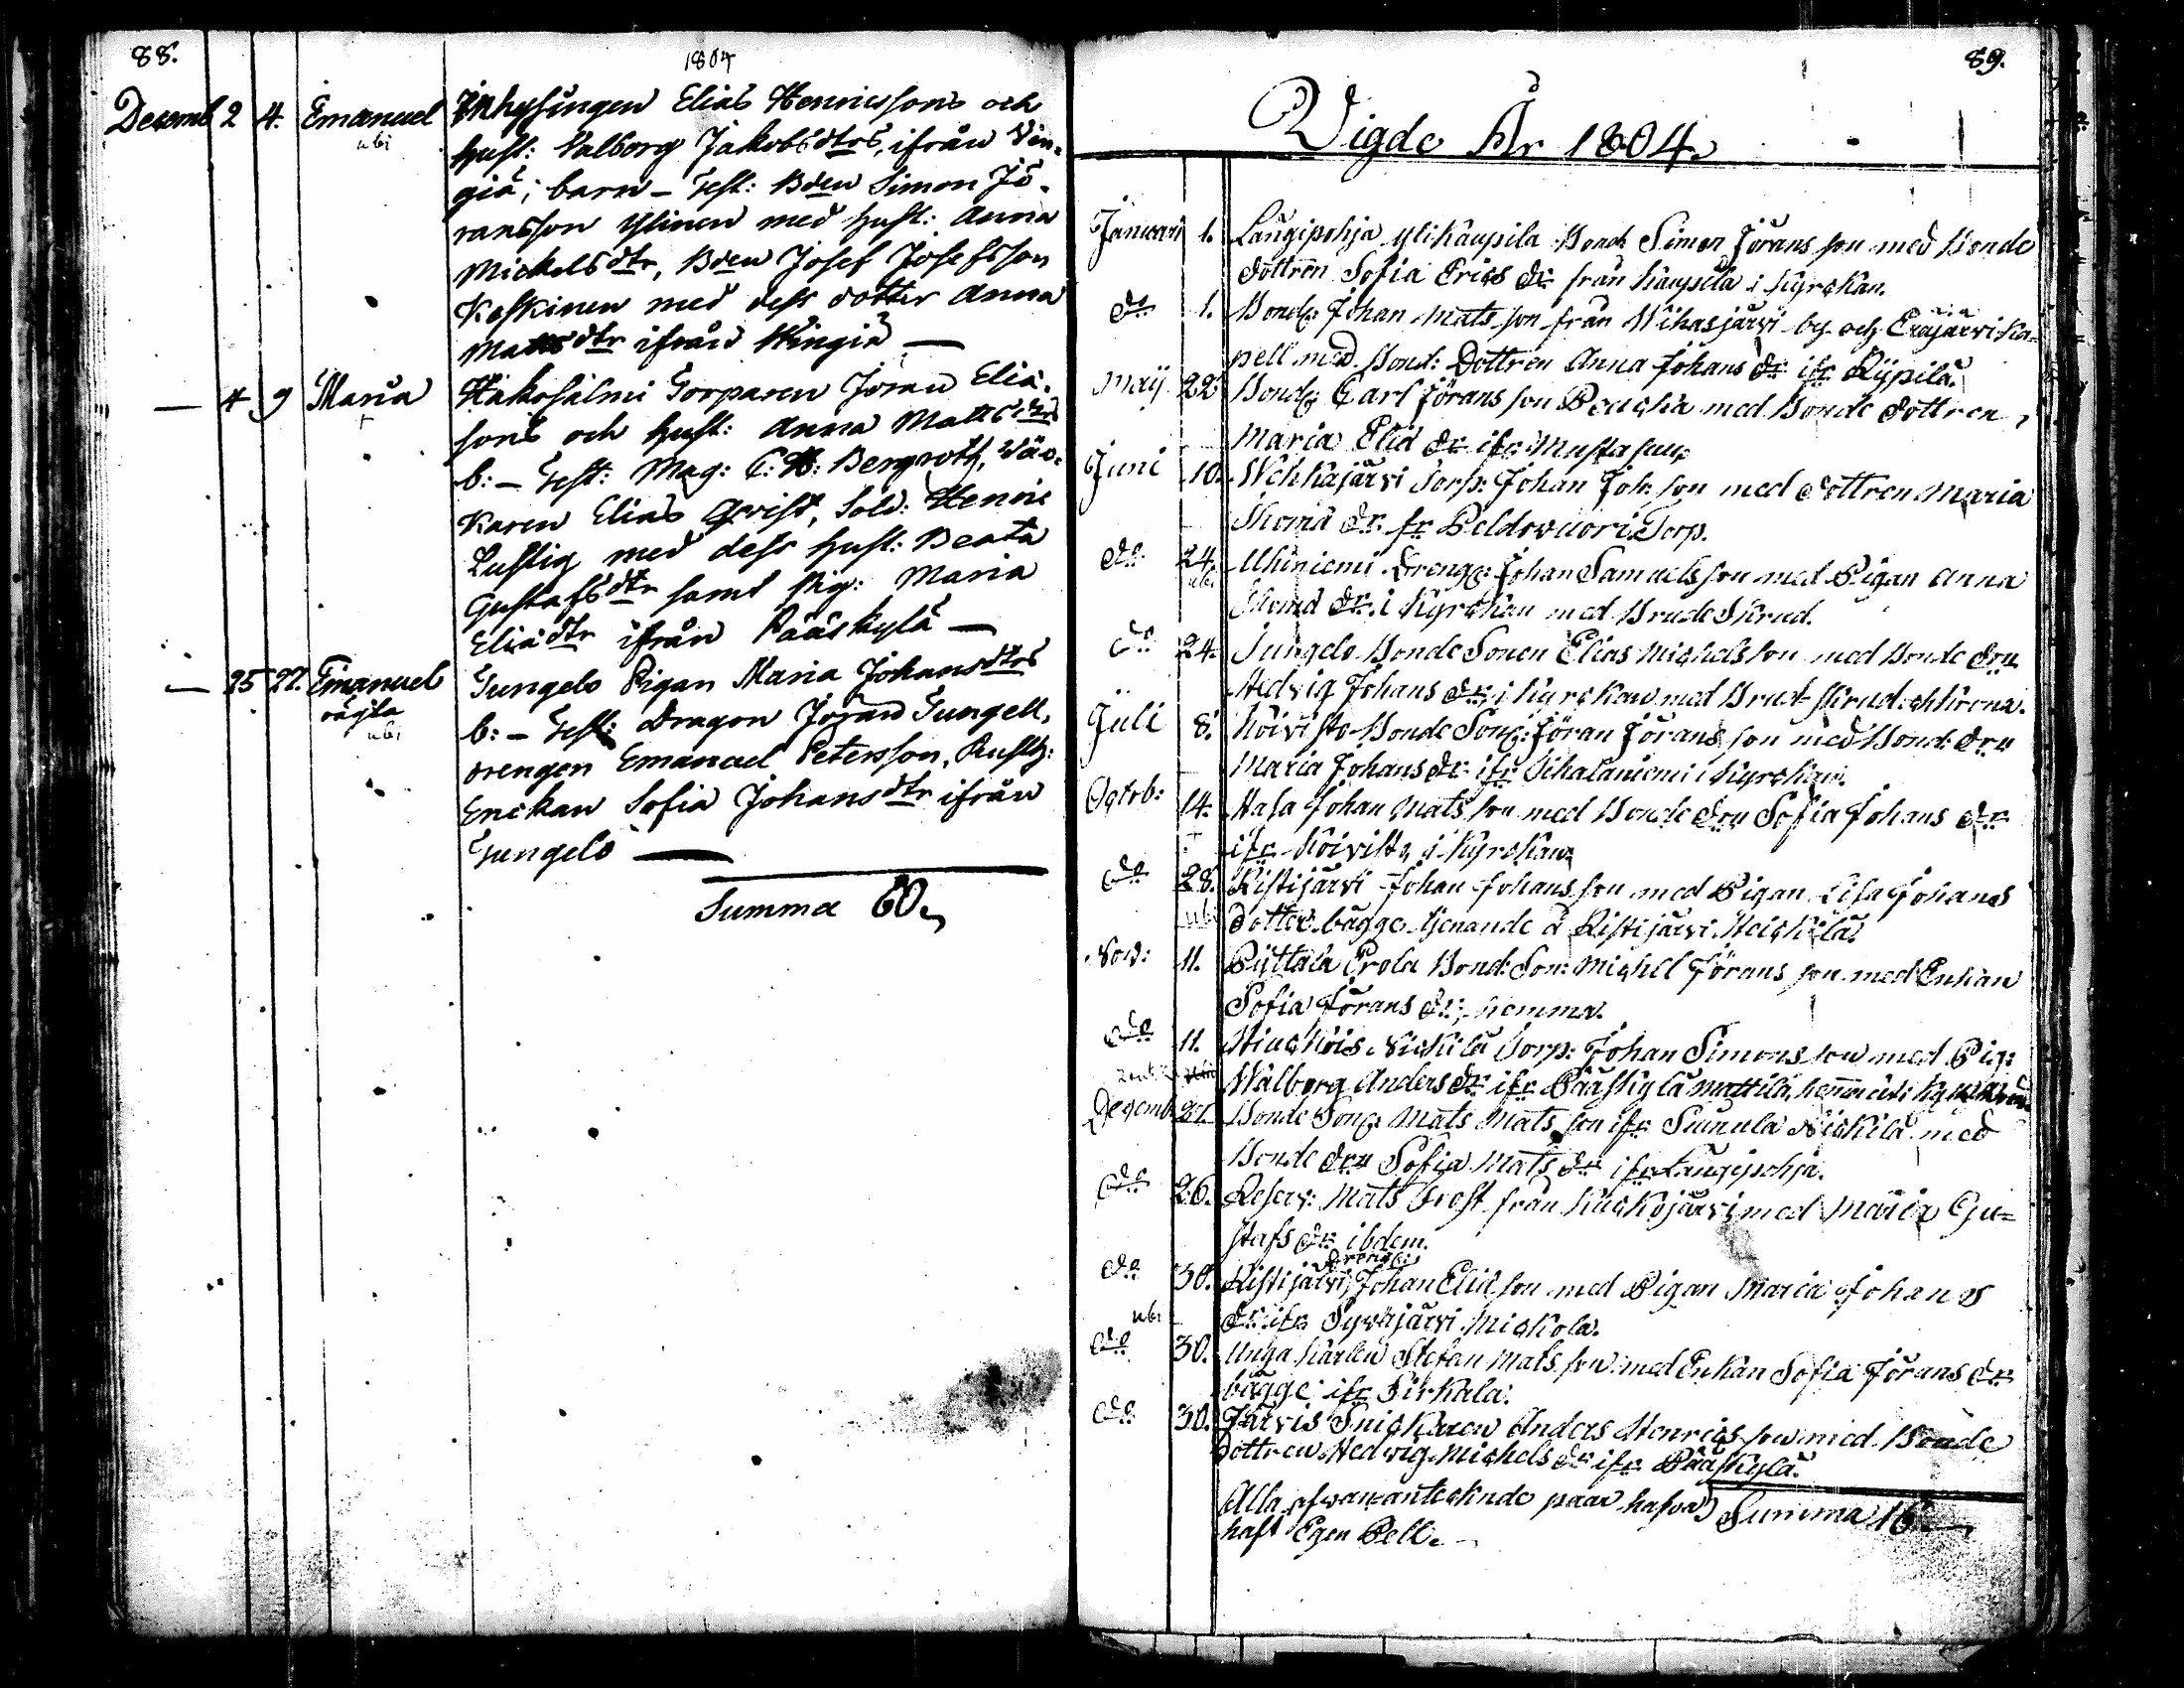 88.
1804
Decemb 2 4. Emanuel Inhysingen Elias Henricssons och
ubi
hust: Valborg Jakobsdtrs, ifrån Vin-
giä; barn - Test: Bden Simon Jö-
ransson Ylinen med hust: Anna
Mickelsdtr, Bden Josef Josefsson
Keskinen med dess dotter Anna
Mattsdtr ifrån Wingiä —
— 4 9 Maria Hakosalmi Torparen Jöran Elia-
sons och hust: Anna Mattsdtrs
b: - Test: Mag: C: H: Bergroth, Wäv-
karen Elias Qvist, Sold: Henric
Lustig med dess hust: Beata
Gustafsdtr samt Pig: Maria
Eliædtr ifrån Pääskylä —
— 25 27. Emanuel Jungelo Pigan Maria Johansdtrs
oägta
ubi
b: - Test: Dragon Jöran Jungell,
drengen Emanuel Petersson, Rusth:
Enckan Sofia Johansdtr ifrån
Jungelo —
Summa 60.
89.
Vigde År 1804.
Januari 1. Längipohja Ylikaupila Bonde Simon Jöransson med Bonde
dottren Sofia Erics dr från Kaupila i kyrckan.
do 1. Bond: Johan Matsson från Wihasjärvi by och Eräjärvi Ka-
pell med Bond: Dottren Anna Johans dr ifr
Maij 22 Bond: Carl Jöransson med Bonde dottren
Maria Eliæ dr ifr
Juni 10. Wehkajärvi Torp: Johan Joh:son med dottren Maria
Thomæ dr fr Peldovuori Torp.
do 24. Uhiniemi Dreng: Johan Samuelsson med Pigan Anna
ubi
Thomæ dr i kyrckan med Brude Skrud.
do 24. Jungelo Bonde Sonen Elias Michelsson med Bonde drn
Hedvig Johans dr i kyrckan med Brud skrud
Juli 8. Koivisto Bonde Son: Jöran Jöransson med Bond: drn
Maria Johans dr ifr Sihalaniemi i kyrckan.
Octob: 14. Hasa Johan Matsson med Bonde drn Sofia Johans dr
ifr Koivisto i kyrckan
do 28. Ristijärvi Johan Johansson med Pigan Lisa Johans
ubi
dotter bägge tjenande å Ristijärvi Heickilä.
Nov: 11. Pyttälä Erola Bond: Son: Michel Jöransson med Enkan
Sofia Jörans dr, hemma.
do 11. Torp: Johan Simonsson med Pig:
Walborg Anders dr ifr Pääskylä Mattila,
Decemb 27. Bonde Son: Mats Matsson ifr med
Bonde drn Sofia Mats dr ifr Längipohja.
do 26. Reserv: Mats Frost från med Maria Gu-
stafs dr ibdem.
Dreng:
do 30. Ristijärvi Johan Eliæson med Pigan Maria Johans
ubi
dr ifr Syväjärvi Mickola.
do 30. Unga Karlen Stefan Matsson med Enkan Sofia Jörans dr
bägge ifr Pirkala.
do 30. Järvis Snickaren Anders Henricsson med Bonde
dottren Hedvig Michels dr ifr Pääskylä.
Alla ofvan antecknde paar hafva
haft Egen Pell. Summa 16